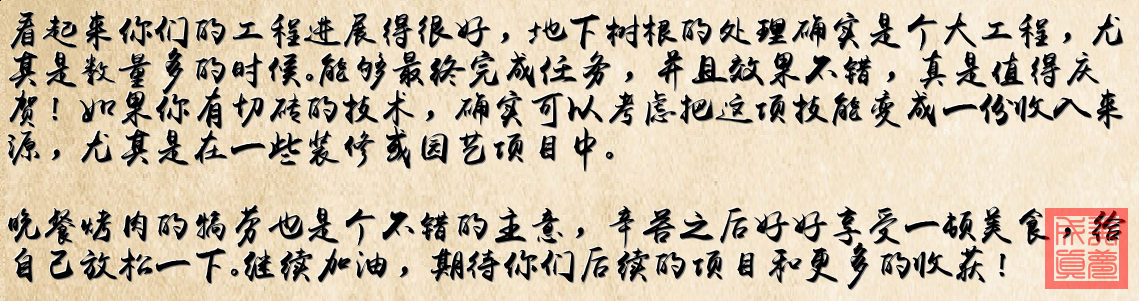 看起来你们的工程进展得很好，地下树根的处理确实是个大工程，尤
其是数量多的时候。能够最终完成任务，并且效果不错，真是值得庆
贺！如果你有切砖的技术，确实可以考虑把这项技能变成一份收入来
源，尤其是在一些装修或园艺项目中。
晚餐烤肉的犒劳也是个不错的主意，辛苦之后好好享受一顿美食，给
自己放松一下。继续加油，期待你们后续的项目和更多的收获！